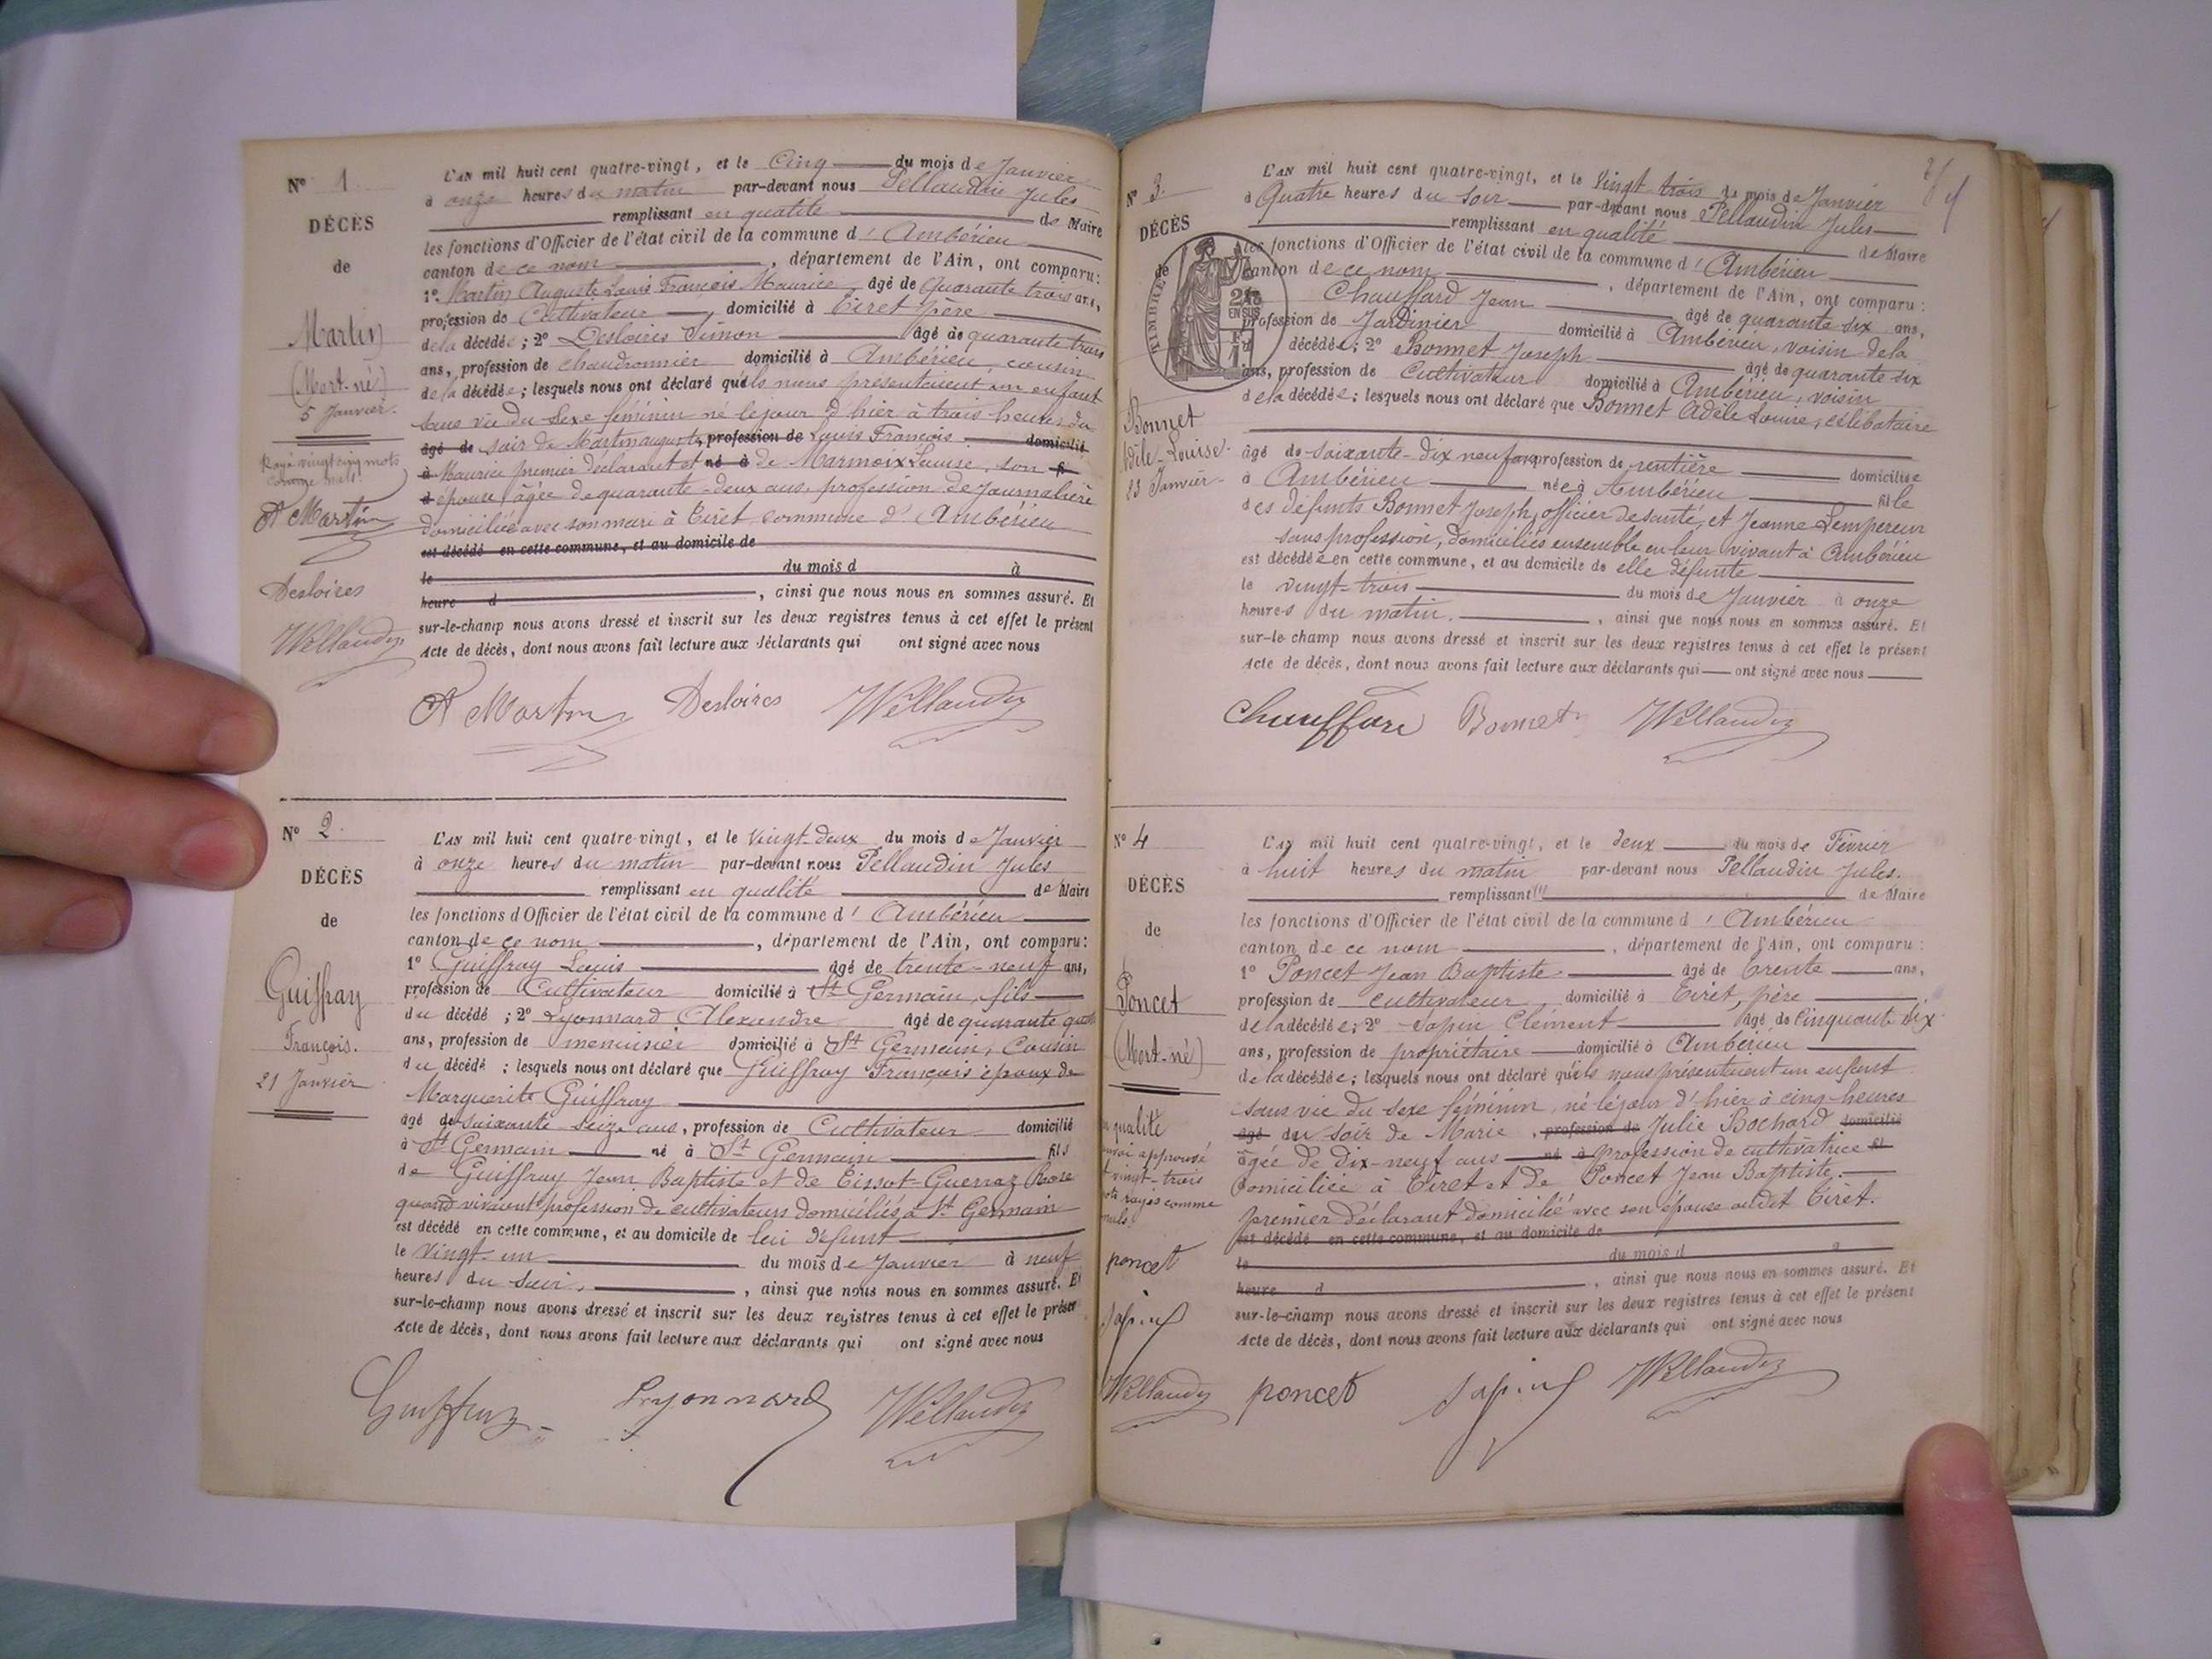 Nº 1
DÉCÈS
de
Martin
(Mort-né)
5 Janvier.
Rayé vingt cinq mots
comme nuls.
A Martin
Desloires
Pellaudin
L'AN mil huit cent quatre-vingt, et le Cinq du mois de Janvier
à onze heures du matin par-devant nous Pellaudin Jules
remplissant en qualité de Maire
les fonctions d'Officier de l'état civil de la commune d' Ambérieu
canton de ce nom, département de l'Ain, ont comparu:
1º Martin Auguste Louis François Maurice, âgé de Quarante trois ans,
profession de Cultivateur, domicilié à Tiret père
de la décédée; 2º Desloires Simon âgé de quarante trois
ans, profession de chaudronnier domicilié à Ambérieu, cousin
de la décédée; lesquels nous ont déclaré qu'ils nous présentaient un enfant
sans vie du sexe féminin né le jour d'hier à trois heures du
âgé de soir de Martin auguste, profession de Louis François domicilié
à Maurice premier déclarant et né à de Marmoix Louise, son fi
d épouse, âgée de quarante-deux ans, profession de journalière
domiciliée avec son mari à Tiret commune d' Ambérieu
est décédé en cette commune, et au domicile de
le du mois d à
heure d , ainsi que nous nous en sommes assuré. Et
sur-le-champ nous avons dressé et inscrit sur les deux registres tenus à cet effet le présent
Acte de décès, dont nous avons fait lecture aux déclarants qui ont signé avec nous
A Martin Desloires Pellaudin
Nº 2.
DÉCÈS
de
Guiffray
François.
21 Janvier
L'AN mil huit cent quatre-vingt, et le Vingt-deux du mois de Janvier
à onze heures du matin par-devant nous Pellaudin Jules
remplissant en qualité de Maire
les fonctions d'Officier de l'état civil de la commune d' Ambérieu
canton de ce nom, département de l'Ain, ont comparu:
1º Guiffray Louis âgé de trente-neuf ans,
profession de Cultivateur domicilié à St Germain, fils
du décédé; 2º Lyonnard Alexandre âgé de quarante
ans, profession de menuisier domicilié à St Germain, Cousin
du décédé; lesquels nous ont déclaré que Guiffray François époux de
Marguerite Guiffray
âgé de soixante seize ans, profession de Cultivateur domicilié
à St Germain né à St Germain fils
de Guiffray Jean Baptiste et de Tissot-Guerraz Rose
quand vivaient profession de cultivateurs domiciliés à St Germain
est décédé en cette commune, et au domicile de lui défunt
le Vingt-un du mois de Janvier à neuf
heures du soir, ainsi que nous nous en sommes assuré. Et
sur-le-champ nous avons dressé et inscrit sur les deux registres tenus à cet effet le présent
Acte de décès, dont nous avons fait lecture aux déclarants qui ont signé avec nous
Guiffray Lyonnard Pellaudin
Nº 3.
DÉCÈS
de
TIMBRE
2/10
EN SUS
Bonnet
Adèle-Louise.
23 Janvier
L'AN mil huit cent quatre-vingt, et le Vingt trois du mois de Janvier
à Quatre heures du soir par-devant nous Pellaudin Jules
remplissant en qualité de Maire
les fonctions d'Officier de l'état civil de la commune d' Ambérieu
canton de ce nom, département de l'Ain, ont comparu:
Chauffard Jean âgé de quarante six ans,
profession de Jardinier domicilié à Ambérieu, voisin de la
décédée; 2º Bonnet Joseph âgé de quarante six
ans, profession de Cultivateur domicilié à Ambérieu, voisin
de la décédée; lesquels nous ont déclaré que Bonnet Adèle Louise, célibataire
âgé de soixante-dix neuf ans profession de rentière domiciliée
à Ambérieu née à Ambérieu fille
des défunts Bonnet Joseph, officier de santé, et Jeanne Lempereur
sans profession, domiciliés ensemble en leur vivant à Ambérieu
est décédée en cette commune, et au domicile de elle défunte
le vingt-trois du mois de Janvier à onze
heures du matin., ainsi que nous nous en sommes assuré. Et
sur-le-champ nous avons dressé et inscrit sur les deux registres tenus à cet effet le présent
Acte de décès, dont nous avons fait lecture aux déclarants qui ont signé avec nous
Chauffard Bonnet Pellaudin
Nº 4
DÉCÈS
de
Poncet
(Mort-né)
en qualité
renvoi approuvé
et vingt-trois
mots rayés comme
nuls.
poncet
Sapin
Pellaudin
L'AN mil huit cent quatre-vingt, et le deux du mois de Février
à huit heures du matin par-devant nous Pellaudin Jules.
remplissant de Maire
les fonctions d'Officier de l'état civil de la commune d' Ambérieu
canton de ce nom, département de l'Ain, ont comparu:
1º Poncet Jean Baptiste âgé de trente ans,
profession de cultivateur, domicilié à Tiret, père
de la décédée; 2º Sapin Clément âgé de Cinquante dix
ans, profession de propriétaire domicilié à Ambérieu
de la décédée; lesquels nous ont déclaré qu'ils nous présentaient un enfant
sans vie du sexe féminin, né le jour d'hier à cinq heures
âgé du soir de Marie, profession de Julie Bochard domicilié
âgée de Dix-neuf ans né à profession de cultivatrice fil
domiciliée à Tiret et de Poncet Jean Baptiste.
premier déclarant domicilié avec son épouse audit Tiret.
est décédé en cette commune, et au domicile de
le du mois d à
heure d , ainsi que nous nous en sommes assuré. Et
sur-le-champ nous avons dressé et inscrit sur les deux registres tenus à cet effet le présent
Acte de décès, dont nous avons fait lecture aux déclarants qui ont signé avec nous
poncet Sapin Pellaudin